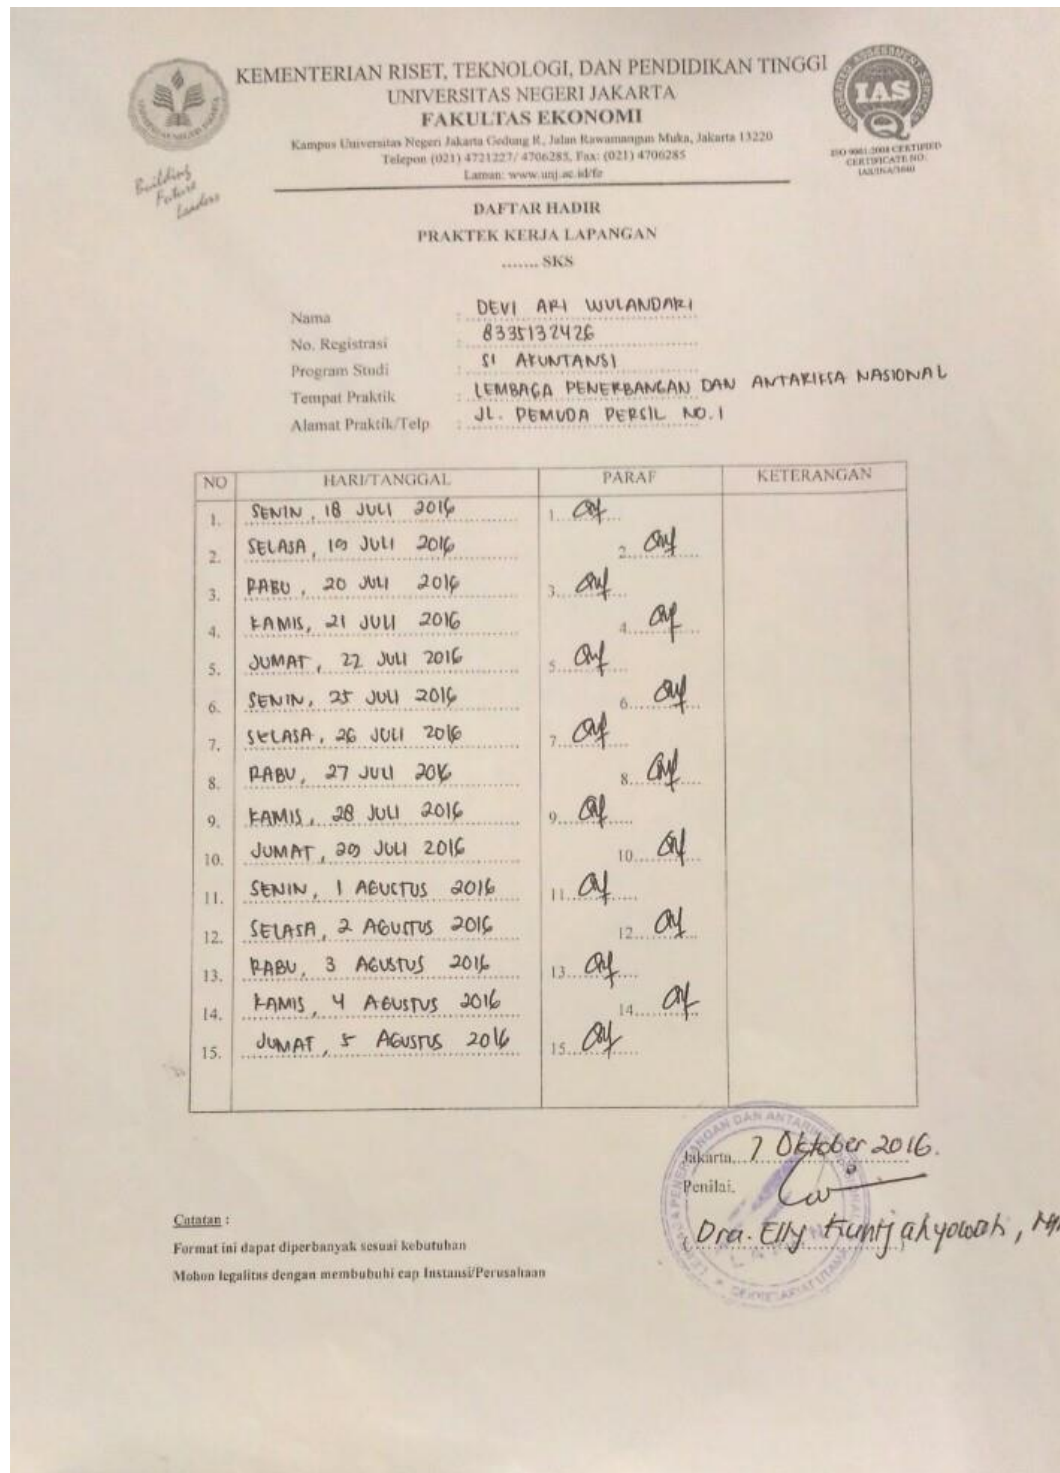 KEMENTERIAN RISET, TEKNOLOGI, DAN PENDIDIKAN TINGGI
UNIVERSITAS NEGERI JAKARTA
FAKULTAS EKONOMI
Kampus Universitas Negeri Jakarta Gedung R, Jalan Rawamangun Muka, Jakarta 13220
Telepon (021) 4721227/ 4706285, Fax: (021) 4706285
Laman: www.unj.ac.id/fe
Building
Future
Leaders
IAS
ISO 9001:2008 CERTIFIED
CERTIFICATE NO:
DAFTAR HADIR
PRAKTEK KERJA LAPANGAN
....... SKS
Nama : DEVI ARI WULANDARI
No. Registrasi : 8335132426
Program Studi : S1 AKUNTANSI
Tempat Praktik : LEMBAGA PENERBANGAN DAN ANTARIKSA NASIONAL
Alamat Praktik/Telp : JL. PEMUDA PERSIL NO. 1
NO HARI/TANGGAL PARAF KETERANGAN
1. SENIN, 18 JULI 2016 1.
2. SELASA, 19 JULI 2016 2.
3. RABU, 20 JULI 2016 3.
4. KAMIS, 21 JULI 2016 4.
5. JUMAT, 22 JULI 2016 5.
6. SENIN, 25 JULI 2016 6.
7. SELASA, 26 JULI 2016 7.
8. RABU, 27 JULI 2016 8.
9. KAMIS, 28 JULI 2016 9.
10. JUMAT, 29 JULI 2016 10.
11. SENIN, 1 AGUSTUS 2016 11.
12. SELASA, 2 AGUSTUS 2016 12.
13. RABU, 3 AGUSTUS 2016 13.
14. KAMIS, 4 AGUSTUS 2016 14.
15. JUMAT, 5 AGUSTUS 2016 15.
Jakarta, 7 Oktober 2016.
Penilai,
Dra. Elly Kuntjahyowati,
Catatan :
Format ini dapat diperbanyak sesuai kebutuhan
Mohon legalitas dengan membubuhi cap Instansi/Perusahaan